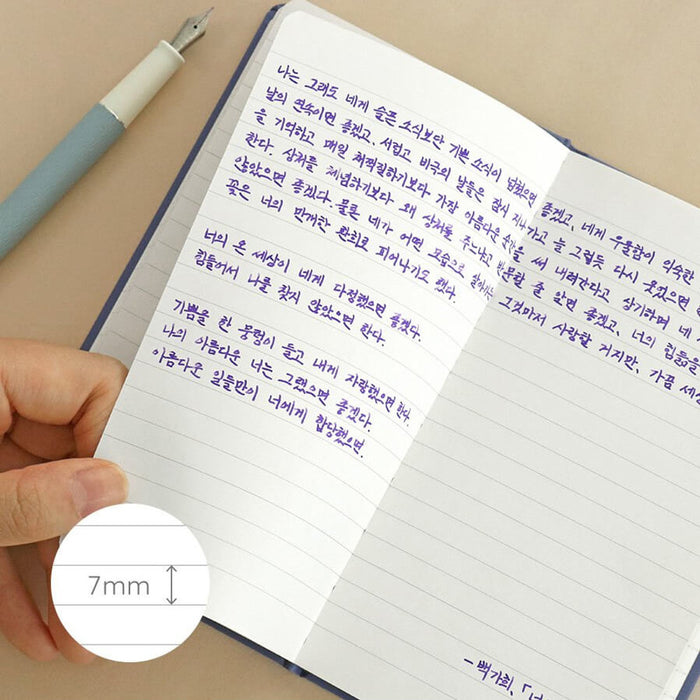 나는 그래도 네게 슬픈 소식보단 기쁜 소식이 넘쳤으면 좋겠고, 네게 우울함이 익숙한
날의 연속이면 좋겠고, 서럽고 비극의 날들은 잠시 지나가고 늘 그렇듯 다시 웃었으면
을 기억하고 매일 채찍질하기보다 가장 아름다운 써 내려간다고 상기하며 네
한다. 상처를 체념하기보다 왜 상처를 주느냐고 반문할 줄 알면 좋겠고, 너의 힘듦을
않았으면 좋겠다. 물론 네가 어떤 모습으로 그것마저 사랑할 거지만, 가끔
꽃은 너의 만개한 환희로 피어나기도 했다.
너의 온 세상이 네게 다정했으면 좋겠다.
힘들어서 나를 찾지 않았으면 한다.
기쁨을 한 뭉텅이 들고 내게 자랑했으면 한다.
나의 아름다운 너는 그랬으면 좋겠다.
아름다운 일들만이 너에게 합당했으면.
- 백가희, 「너
7mm